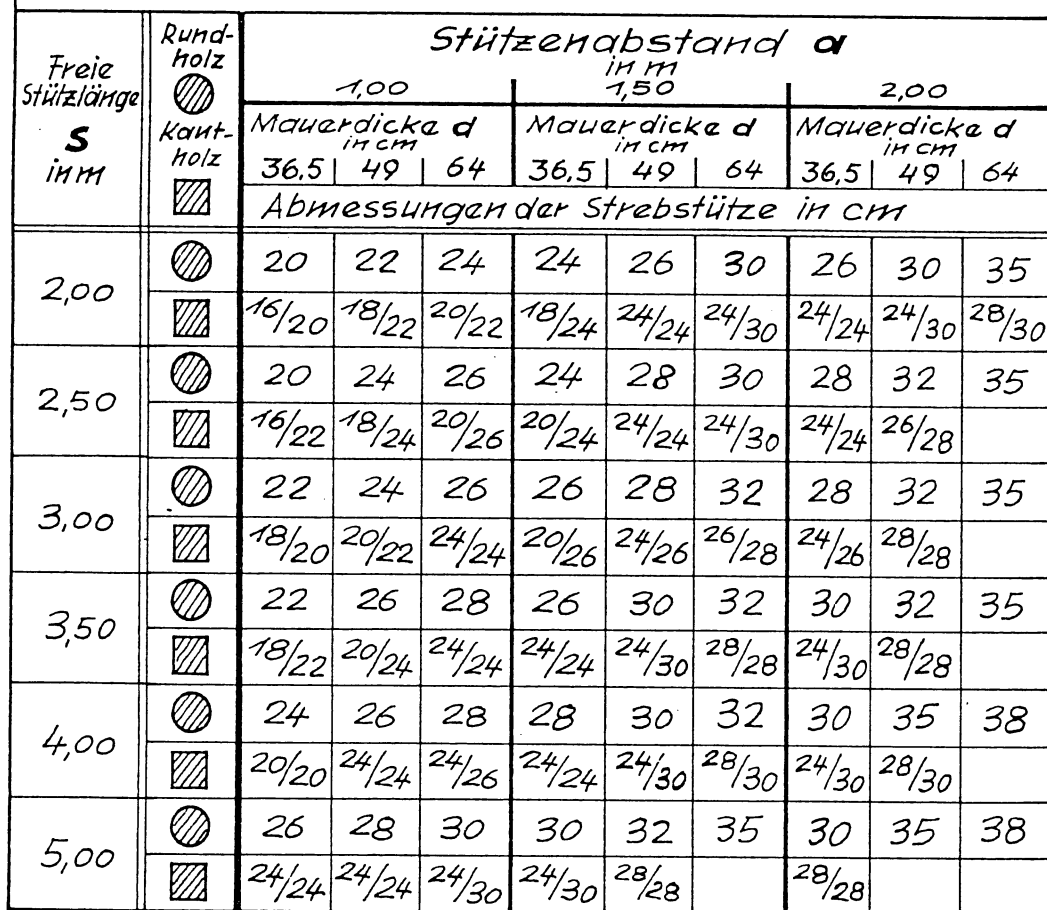 Freie Stützlänge s in m
Rund-holz
Kant-holz
Stützenabstand a
in m
1,00 1,50 2,00
Mauerdicke d in cm Mauerdicke d in cm Mauerdicke d in cm
36,5 49 64 36,5 49 64 36,5 49 64
Abmessungen der Strebstütze in cm
2,00
20 22 24 24 26 30 26 30 35
16/20 18/22 20/22 18/24 24/24 24/30 24/24 24/30 28/30
2,50
20 24 26 24 28 30 28 32 35
16/22 18/24 20/26 20/24 24/24 24/30 24/24 26/28
3,00
22 24 26 26 28 32 28 32 35
18/20 20/22 24/24 20/26 24/26 26/28 24/26 28/28
3,50
22 26 28 26 30 32 30 32 35
18/22 20/24 24/24 24/24 24/30 28/28 24/30 28/28
4,00
24 26 28 28 30 32 30 35 38
20/20 24/24 24/26 24/24 24/30 28/30 24/30 28/30
5,00
26 28 30 30 32 35 30 35 38
24/24 24/24 24/30 24/30 28/28 28/28